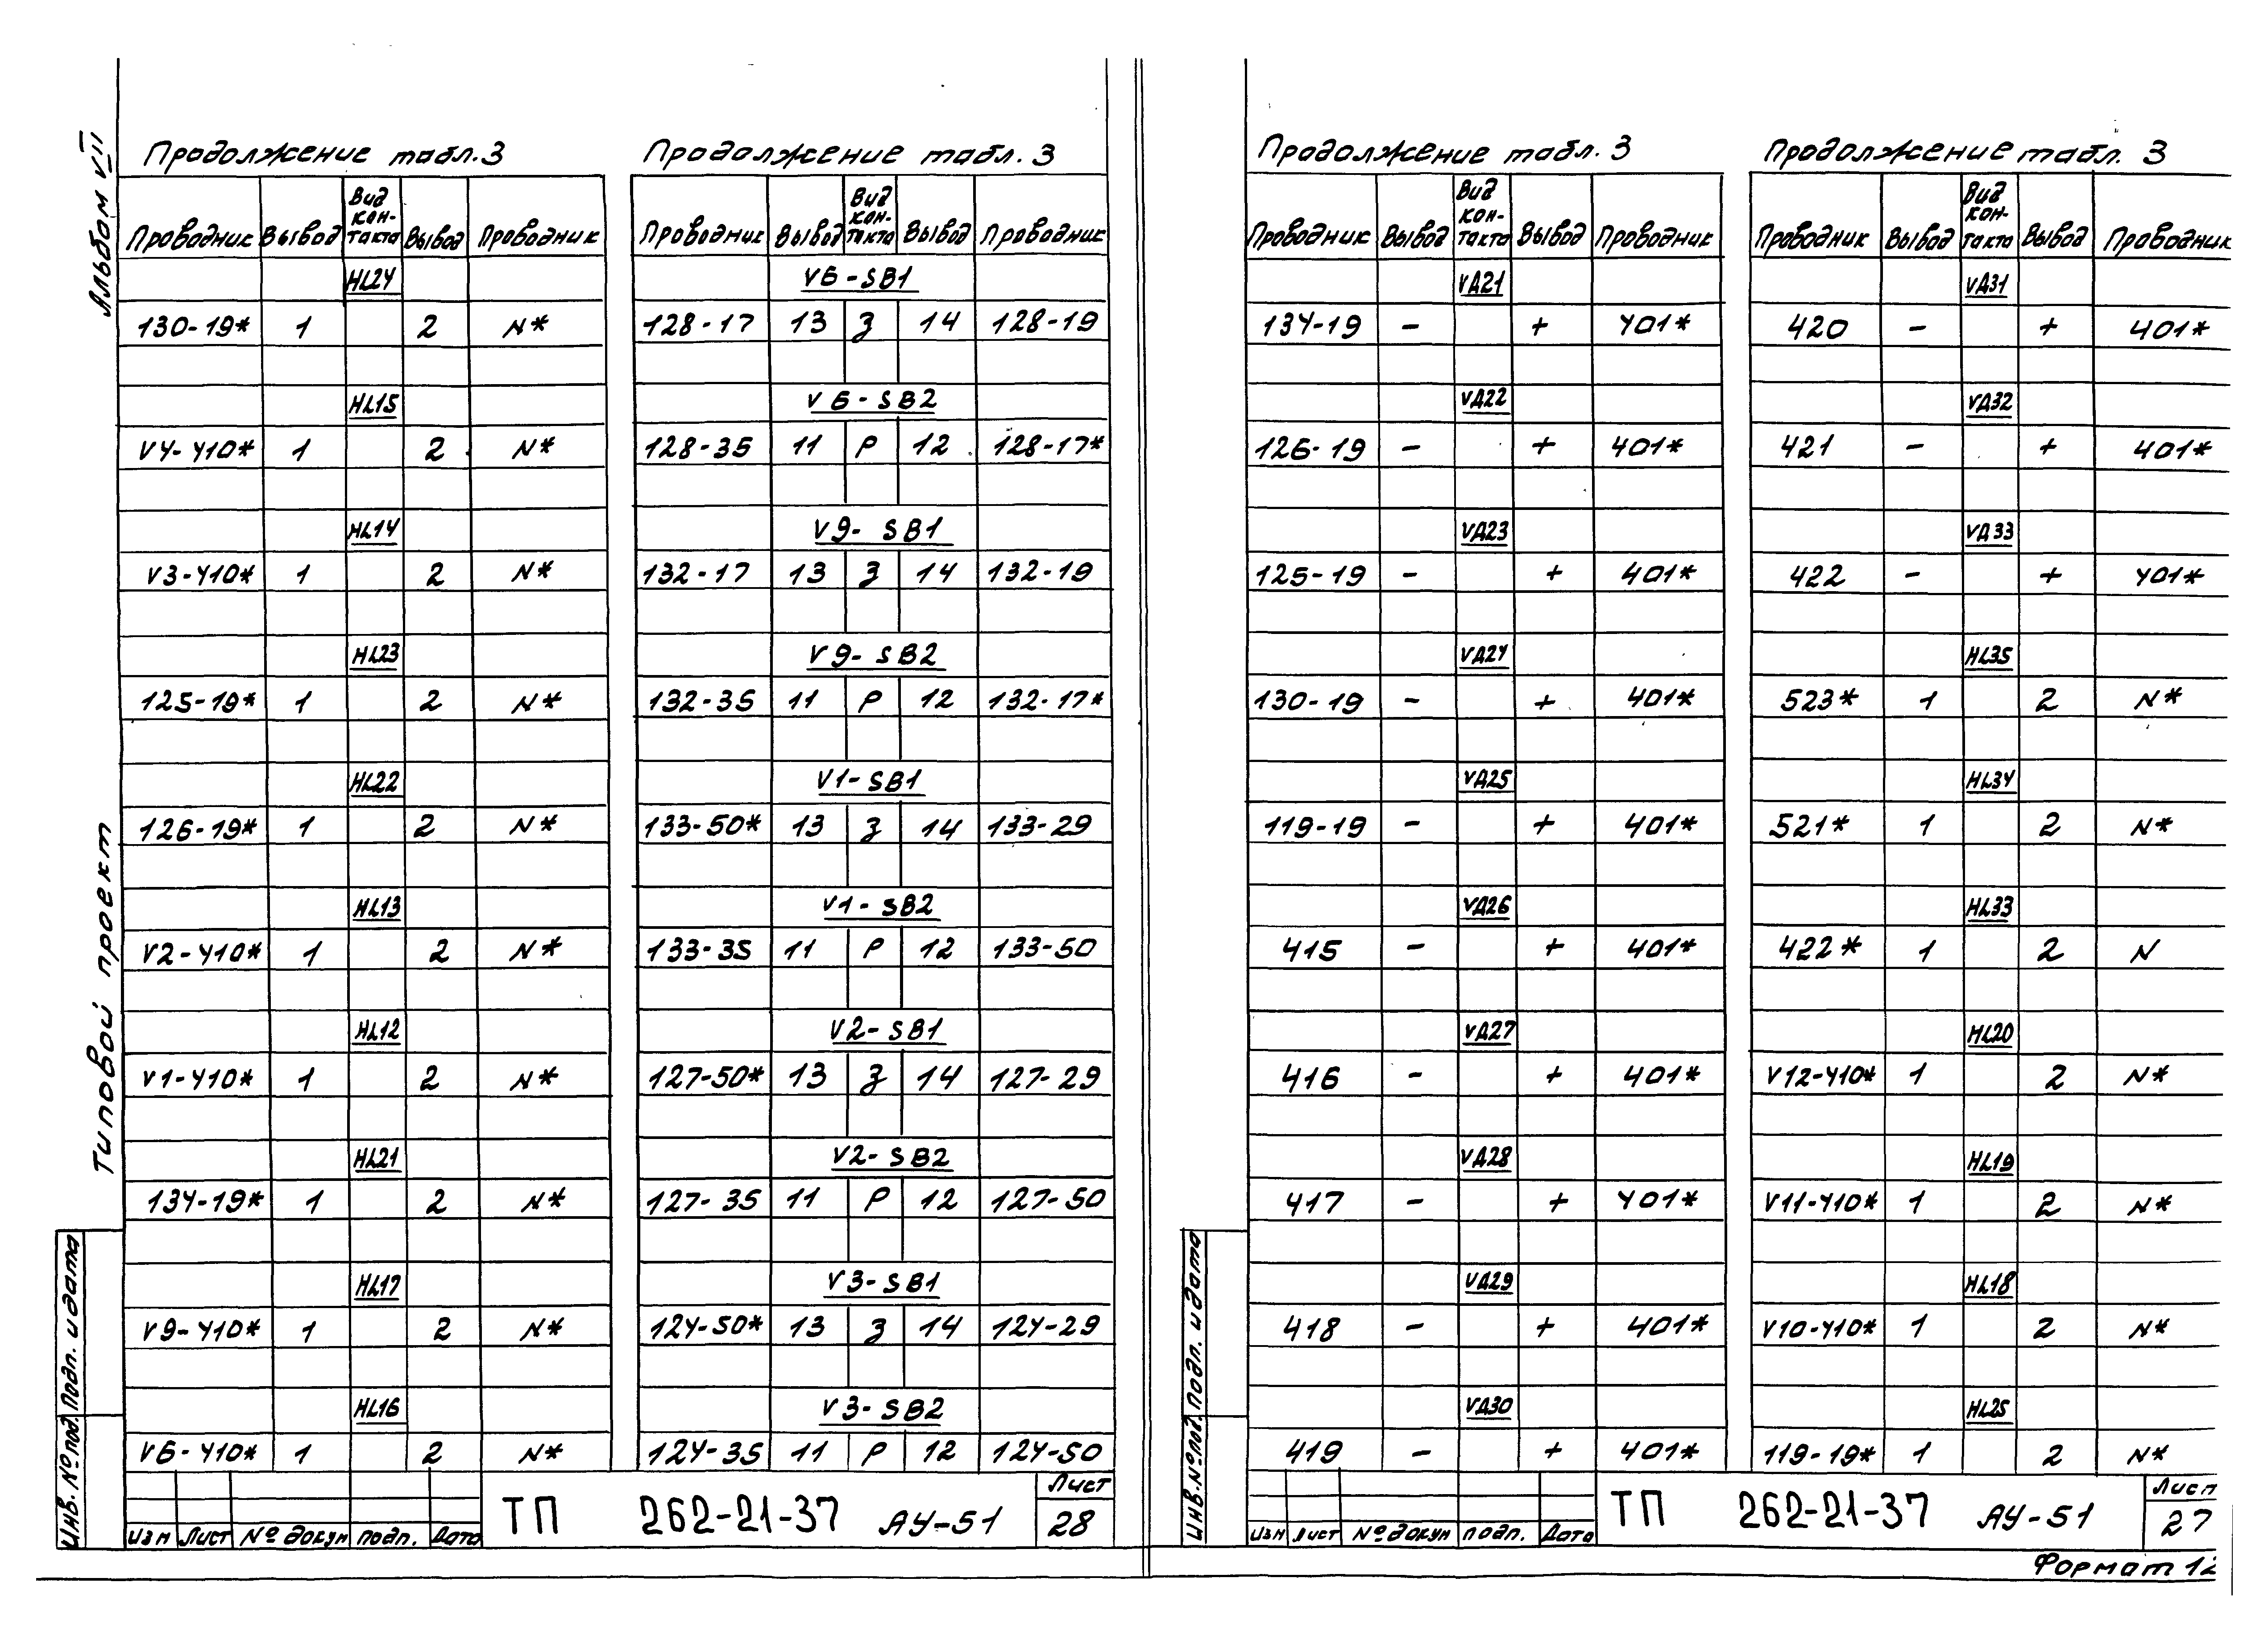 Альбом VII
Типовой проект
Инв. № под. Подп. и дата
Продолжение табл. 3
Проводник Вывод Вид кон-такта Вывод Проводник
HL24
130-19* 1 2 N*
HL15
V4-410* 1 2 N*
HL14
V3-410* 1 2 N*
HL23
125-19* 1 2 N*
HL22
126-19* 1 2 N*
HL13
V2-410* 1 2 N*
HL12
V1-410* 1 2 N*
HL21
134-19* 1 2 N*
HL17
V9-410* 1 2 N*
HL16
V6-410* 1 2 N*
Продолжение табл. 3
Проводник Вывод Вид кон-такта Вывод Проводник
V6-SB1
128-17 13 З 14 128-19
V6-SB2
128-35 11 Р 12 128-17*
V9-SB1
132-17 13 З 14 132-19
V9-SB2
132-35 11 Р 12 132-17*
V1-SB1
133-50* 13 З 14 133-29
V1-SB2
133-35 11 Р 12 133-50
V2-SB1
127-50* 13 З 14 127-29
V2-SB2
127-35 11 Р 12 127-50
V3-SB1
124-50* 13 З 14 124-29
V3-SB2
124-35 11 Р 12 124-50
Изм Лист № докум подп. Дата
ТП 262-21-37 АУ-51
Лист
28
Инв. № под. Подп. и дата
Продолжение табл. 3
Проводник Вывод Вид кон-такта Вывод Проводник
VД21
134-19 - + 401*
VД22
126-19 - + 401*
VД23
125-19 - + 401*
VД24
130-19 - + 401*
VД25
119-19 - + 401*
VД26
415 - + 401*
VД27
416 - + 401*
VД28
417 - + 401*
VД29
418 - + 401*
VД30
419 - + 401*
Продолжение табл. 3
Проводник Вывод Вид кон-такта Вывод Проводник
VД31
420 - + 401*
VД32
421 - + 401*
VД33
422 - + 401*
HL35
523* 1 2 N*
HL34
521* 1 2 N*
HL33
422* 1 2 N
HL20
V12-410* 1 2 N*
HL19
V11-410* 1 2 N*
HL18
V10-410* 1 2 N*
HL25
119-19* 1 2 N*
Изм Лист № докум подп. Дата
ТП 262-21-37 АУ-51
Лист
27
Формат 12